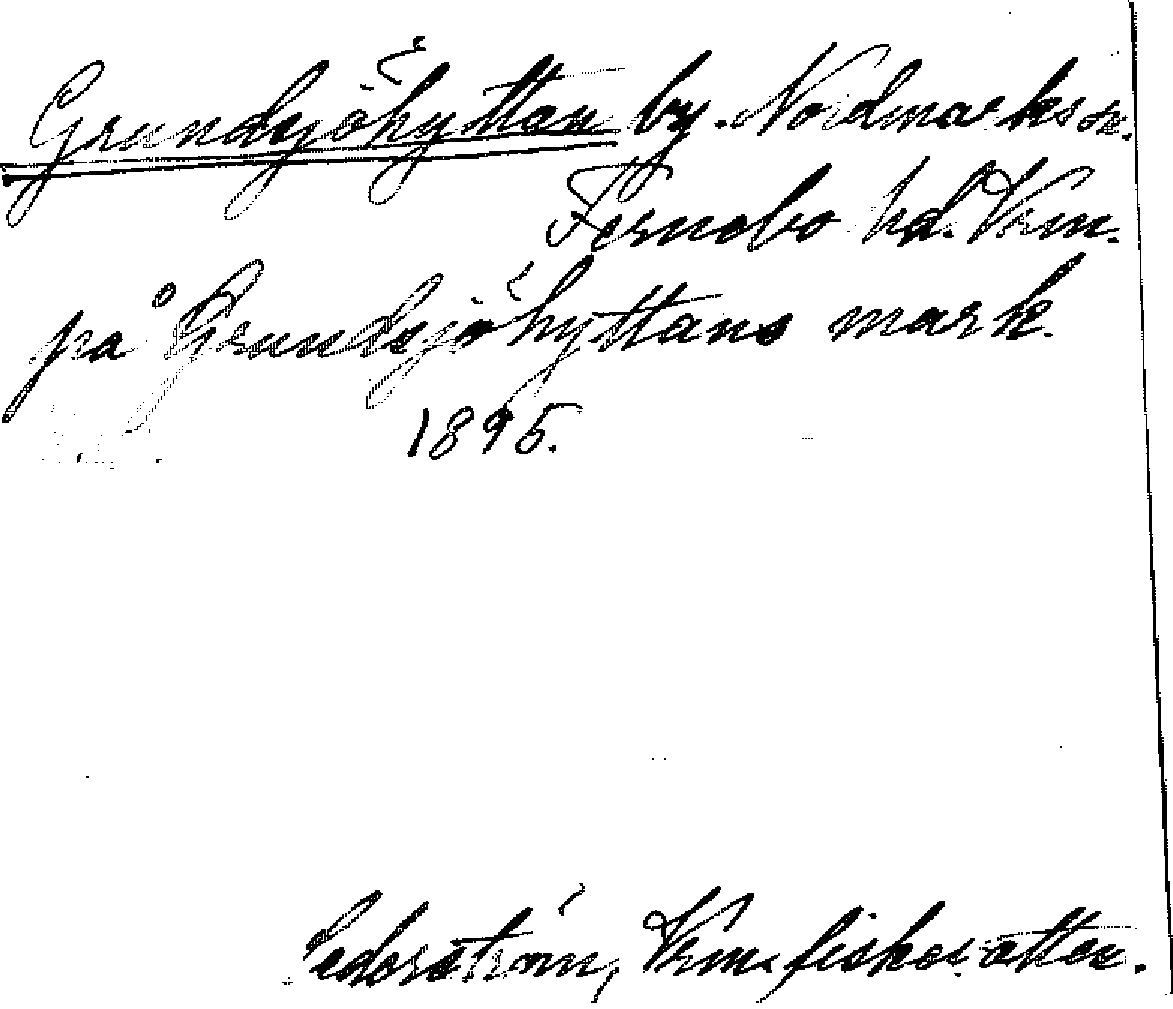 Grundsjöhyttan by. Nordmarks sn.
Fernebo hd. Vrm.
på Grundsjöhyttans mark.
1895.
Cederström, Vrms fiskevatten.